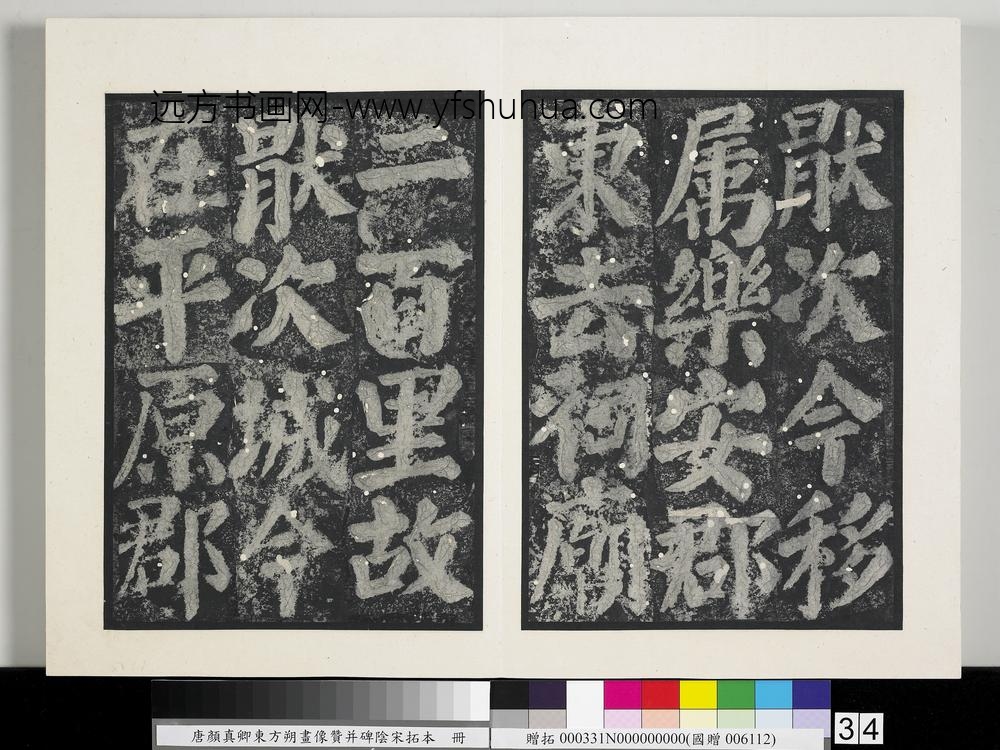 远方书画网-www.yfshuhua.com
猒次今移
属樂安郡
東去祠廟
二百里故
猒次城今
在平原郡
唐顏真卿東方朔畫像贊并碑陰宋拓本 冊
贈拓 000331N000000000(國贈 006112)
34